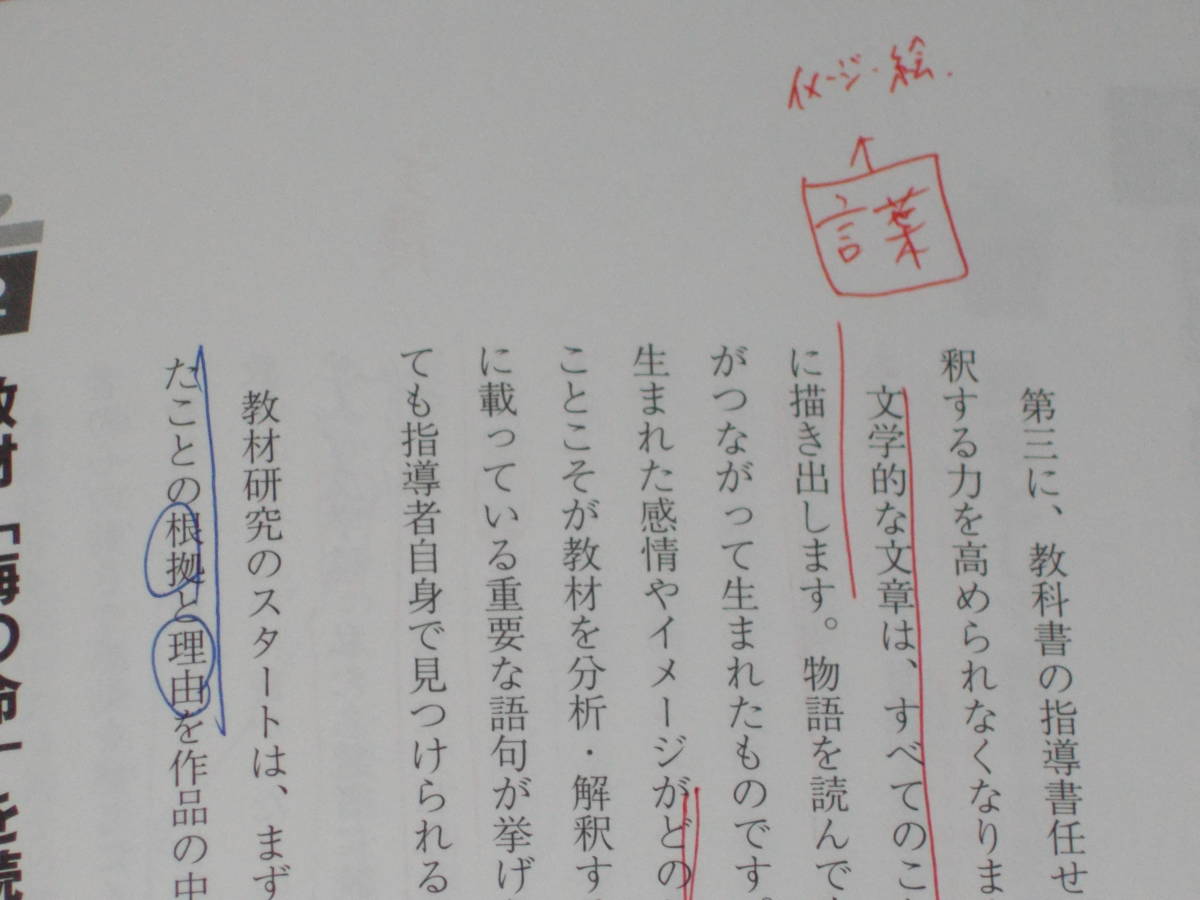 イメージ・絵.
↑
言葉
第三に、教科書の指導書任せ
釈する力を高められなくなりま
文学的な文章は、すべてのこ
に描き出します。物語を読んで
がつながって生まれたものです。
生まれた感情やイメージがどの
ことこそが教材を分析・解釈す
に載っている重要な語句が挙げ
ても指導者自身で見つけられる
教材研究のスタートは、まず
たことの根拠と理由を作品の中
2
教材「海の命」を読